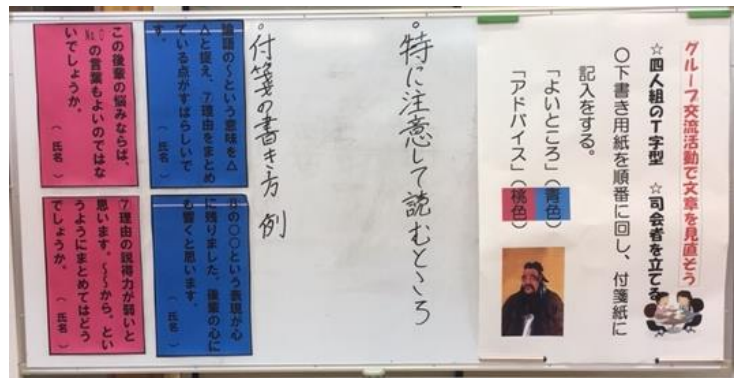 グループ交流活動で文章を見直そう
☆四人組のT字型　☆司会者を立てる
○下書き用紙を順番に回し、付箋紙に
記入をする。
「よいところ」（青色）
「アドバイス」（桃色）
○特に注意して読むところ
○付箋の書き方　例
論語の～という意味を△
△と捉え、⑦理由をまとめ
ている点がすばらしいで
す。
（　氏名　）
⑧の○○という表現が心
に残りました。後輩の心に
も響くと思います。
（　氏名　）
この後輩の悩みならば、
№○の言葉もよいのではな
いでしょうか。
（　氏名　）
⑦理由の説得力が弱いと
思います。～～から、とい
うようにまとめてはどう
でしょうか。
（　氏名　）